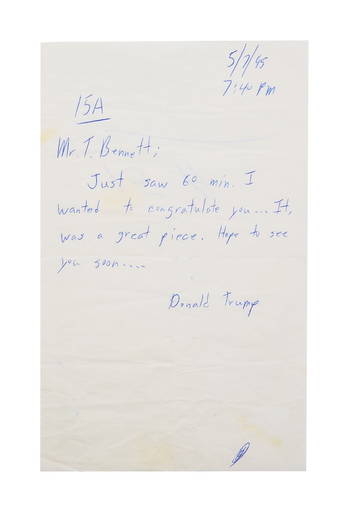 5/7/95
7:40 PM
15A
Mr. T. Bennett;
Just saw 60 min. I
wanted to congratulate you... It,
was a great piece. Hope to see
you soon....
Donald Trump